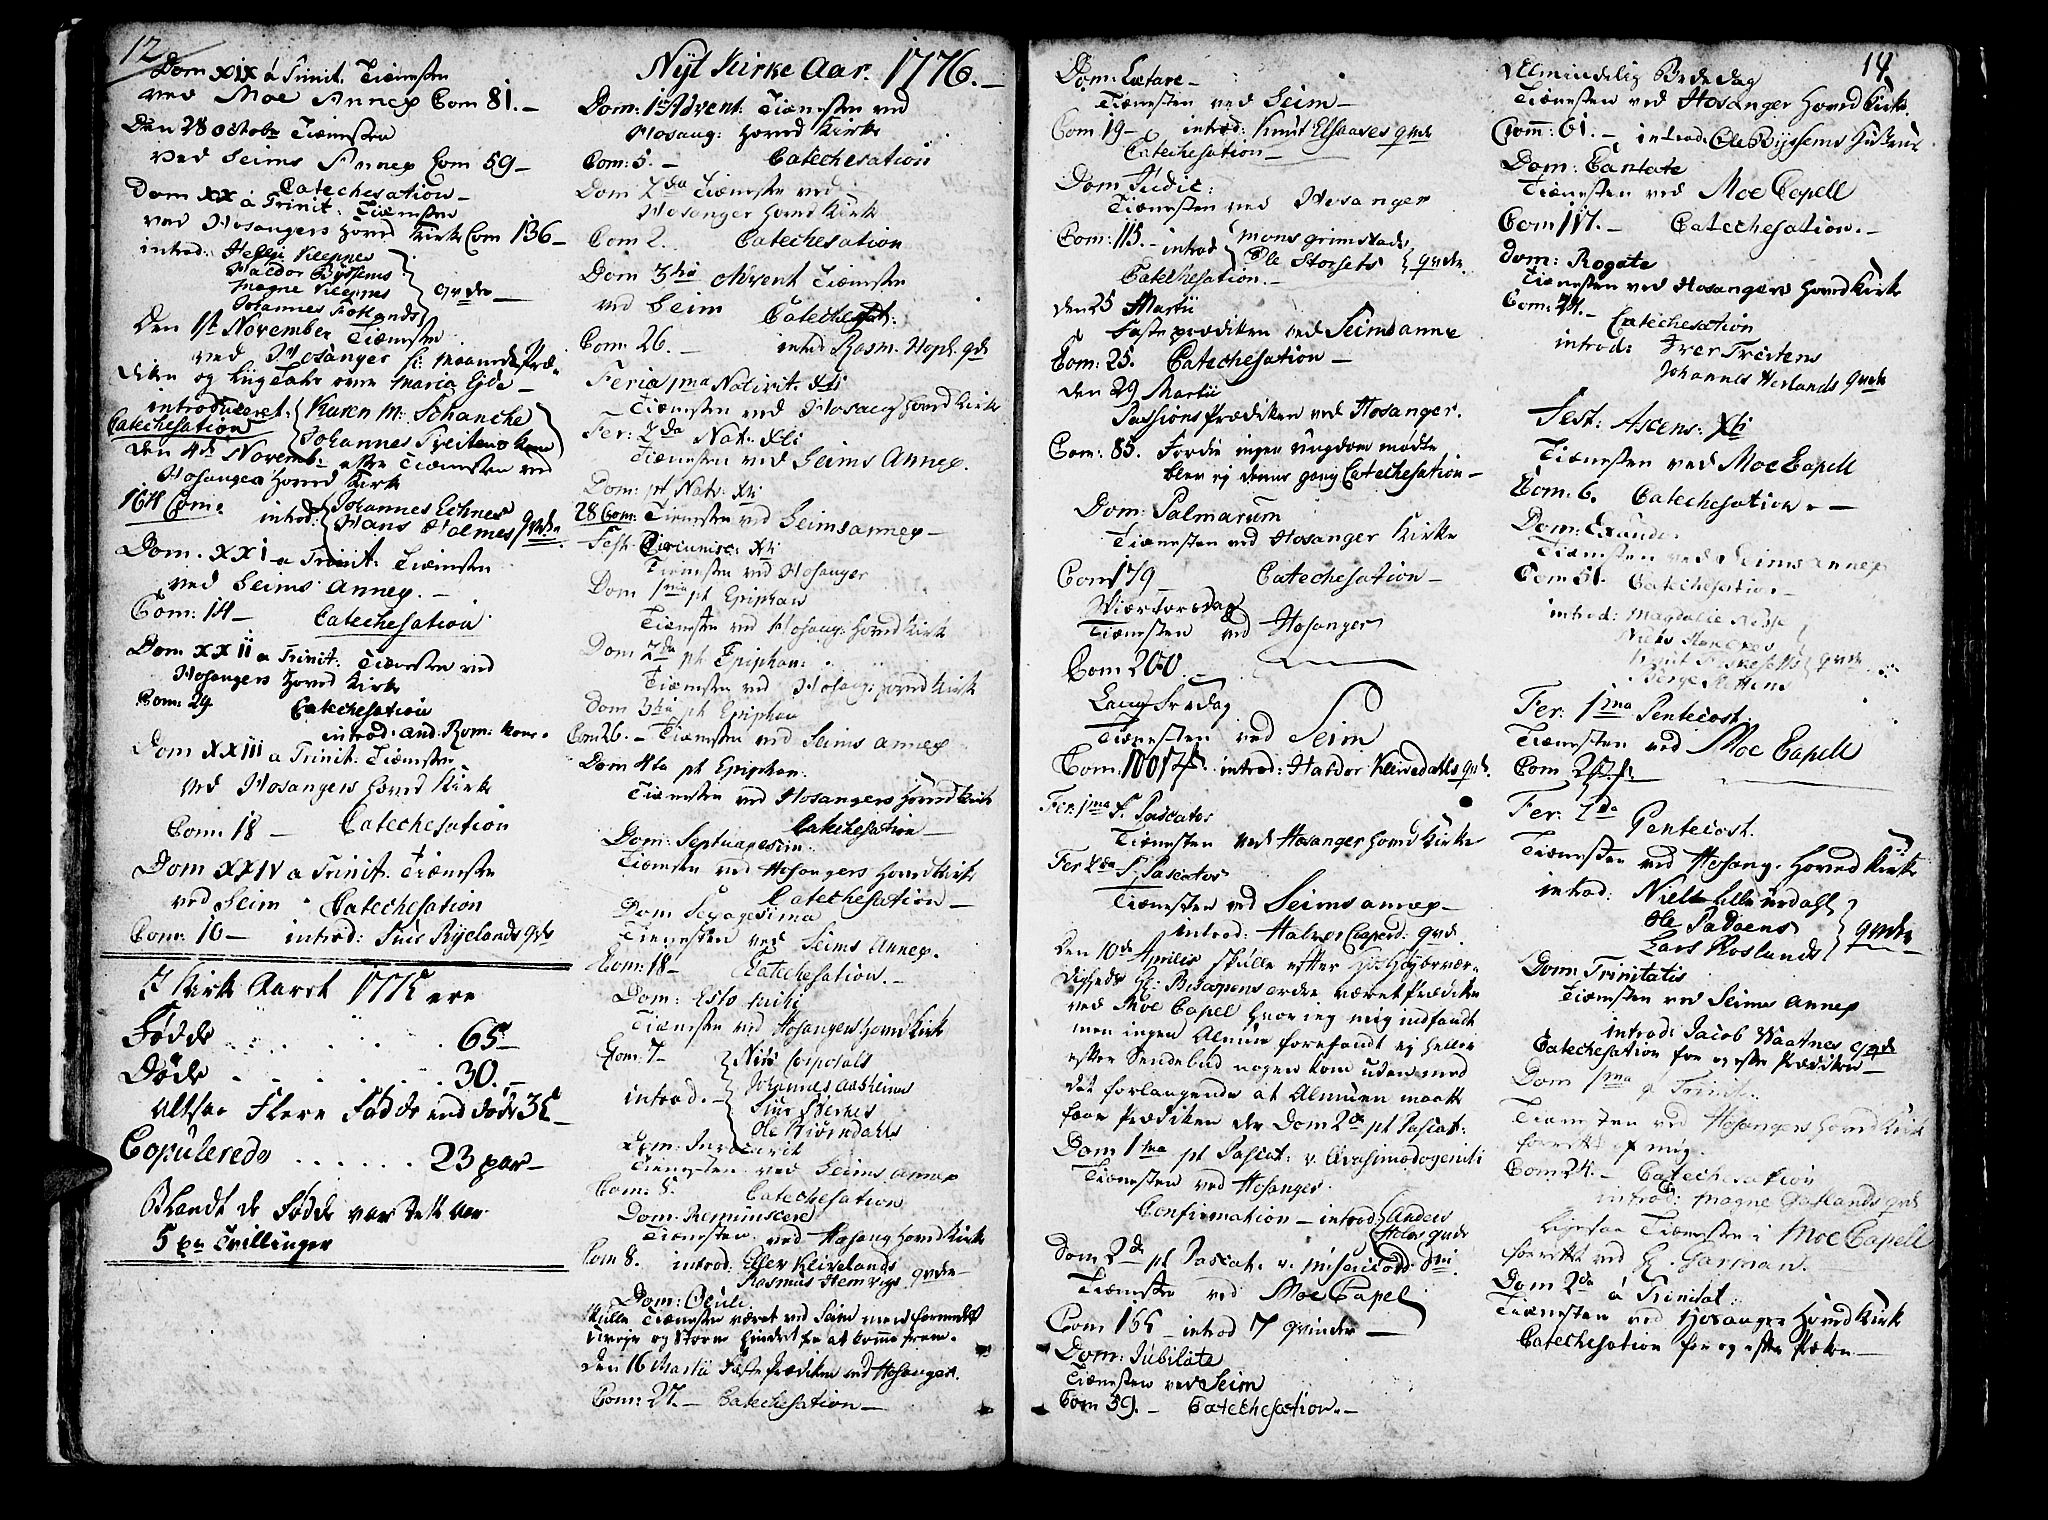 12
Dom XIX á Trinit. Tienesten
ved Moe Annex Com 81. –
Den 28 octobr Tienesten
ved Seims Annex Com 59 –
Catechesation –
Dom XX á Trinit. Tienesten
ved Hosangers hoved Kirke Com 136 –
introd: Helje Kleppes
Haldor Byssems
Magne Kleppes
Johannes Fotlands
qvder –
Den 1ste November Tienesten
ved Hosanger
og Liigtale over Maria Gjde –
introduceret: Karen M: Schanche
Catechesation
Johannes Treitens kone
den 4de Novemb: efter Tienesten ved
Hosanger hoved Kirke
164 Com: introd: Johannes Echnes
Hans Holmes qvdr.
Dom. XXI a Trinit: Tienesten
ved Seims Annex. –
Com: 14 – Catechesation
Dom XXII a Trinit: Tienesten ved
Hosangers hoved Kirke
Com: 29 Catechesation
introd: and: Rom: kone.
Dom XXIII a Trinit: Tienesten
ved Hosangers hoved Kirke
Com: 18 – Catechesation
Dom XXIV a Trinit. Tienesten
ved Seim Catechesation
Com: 10 – introd: Siur Ryelands qvde
I Kirke Aaret 1775 ere
Fødde . . . . . 65 –
Døde . . . . . 30. –
altsaa Flere Fødde end døde 35 –
Copulerede . . . . . . 23 par –
Blandt de Fødde var dette Aar
5 par Tvillinger
Nyt Kirke Aar. 1776. –
Dom: 1st Advent: Tienesten ved
Hosang: hoved Kirke
Com: 5. – Catechesation
Dom 2da Tienesten ved
Hosanger hoved Kirke
Com 2. Catechesation
Dom 3tia Advent Tienesten
ved Seim Catechesat:
Com: 26. – introd Rasm. Hopl. qvde
Feria 1ma Nativit. Xti
Tienesten ved Hosang hoved Kirke
Fer: 2da Nat: Xti
Tienesten ved Seims Annex.
Dom: pt Nativ: Xti
28 Com: Tienesten ved Seims annex –
Fest. Circumsc: Xti
Tienesten ved Hosanger
Dom 1ma pt Epiphan
Tienesten ved Hosang: hoved Kirke
Dom 2da pt Epiphan:
Tienesten ved Hosang: hoved Kirke
Dom 3tia pt Epiphan
Com 26. – Tienesten ved Seims annex
Dom 4ta pt Epiphan.
Tienesten ved Hosangers hoved Kirke
Catechesation –
Dom: Septuagesim:
Tienesten ved Hosangers hoved Kirke
Catechesation –
Dom Sexagesima
Tienesten ved Seims Annex.
Com: 18 – Catechesation. –
Dom: Esto mihi
Tienesten ved Hosangers hoved Kirke
Com: 7 – Niels Corporals
introd. – Johannes Aasheims
Siur
Ole Biørndahls
Dom: Invocavit
Tienesten ved Seims annex
Com: 8. Catechesation
Dom. Reminiscere
Tienesten ved Hosang hoved Kirke
Com 8. introd: Eller Kleivelands
Rasmus Hemvigs qvder –
Dom: Oculi
skulle Tienesten været ved Seim men formedelst
og Storm hindret fra at komme frem.
den 16 Martii Faste Prædiken ved Hosanger.
Com: 27. – Catechesation –
Dom: Lætare –
Tienesten ved Seim –
Com 19 – introd: Knut Elsaases qvde
Catechesation –
Dom Judic:
Tienesten ved Hosanger
Com: 115. – introd Mons Grimstads
Ole Storsets qvder.
Catechesation. –
den 25 Martii
Fasteprædiken ved Seims anne
Com: 25. Catechesation –
den 29 Martii
Passions Prædiken ved Hosanger.
Com: 85. Fordi ingen ungdom mødte
blev ej denne gang Catechesation –
Dom: Palmarum
Tienesten ved Hosanger Kirke
Com 179 – Catechesation –
Skiærtorsdag
Tienesten ved Hosanger
Com 200.
Lang Fredag
Tienesten ved Seim
Com: 100 introd: Haldor Kleivedahls qvd.
Fer. 1ma f. Pascatos
Tienesten ved Hosanger hoved Kirke
Fer 2da f. Pascatos
Tienesten ved Seims annex –
introd: Halvor qvd.
Den 10de Aprilis skulle efter Høyærvær-
digheds Hr: Biscopens ordre været Prædiken
ved Moe Capel hvor jeg mig indfandt
men ingen Almue forefandt ej heller
efter Sendebud nogen kom uden med
det forlangende at Almuen maatte
faae Prædiken der Dom 2da pt Pascat:
Dom 1ma pt Pascat: v. Qvasimodogeniti
Tienesten ved Hosanger.
Confirmation – introd Anders
Holes qvde
Dom 2da pt Pascat: v. misericord: dni
Tienesten ved Moe Capel
Com 155 – introd 7 qvinder –
Dom: Jubilate
Tienesten ved Seim
Com 59. – Catechesation. –
14
Almindelig Bededag
Tienesten ved Hosanger hoved Kirke
Com: 61. – introd. Ole Byssems Hustrue
Dom: Cantate
Tienesten ved Moe Capell
Com 117. – Catechesation. –
Dom: Rogate
Tienesten ved Hosangers hoved Kirke
Com: 24. – Catechesation
introd: Iver Treitens
Johannes Herlands qvde
Fest: Ascens: Xti
Tienesten ved Moe Capell
Com: 6. Catechesation. –
Dom: Exaudi
Tienesten ved Seims annex
Com 51. Catechesation –
introd: Magdalie
Niels
Knut
Børge
qvde
Fer: 1ma Pentecost
Tienesten ved Moe Capell
Com
Fer: 2da Pentecost.
Tienesten ved Hosang. hoved Kirke
introd: Niels Lilleurdahl
Ole Padøens
Lars Roslands qvder
Dom Trinitatis
Tienesten ved Seims annex
introd: Jacob Waatnes qvde
Catechesation for og efter Prædiken –
Dom 1ma p Trinit.
Tienesten ved Hosangers hoved Kirke
forrettet af mig.
Com: 24. – Catechesation
introd: Magne qvd
ligesaa Tienesten i Moe Capell
forrettet ved Hr. Garman.
Dom 2da á Trinitat:
Tienesten ved Hosanger hoved Kirke
Catechesation for og efter Præken –